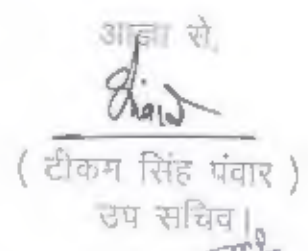 आज्ञा से,
( टीकम सिंह पंवार )
उप सचिव।